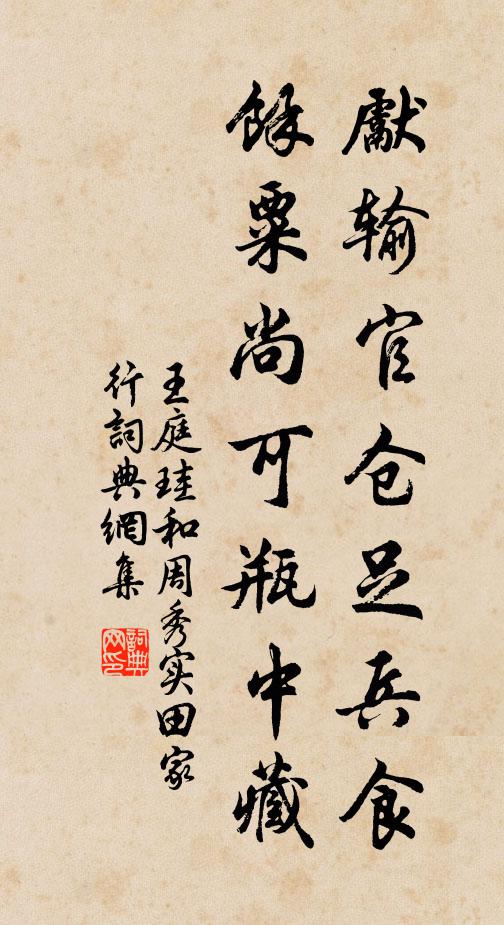 獻输官仓足兵食
餘粟尚可瓶中藏
王庭珪和周秀实田家
行詞典網集
詞典
网印